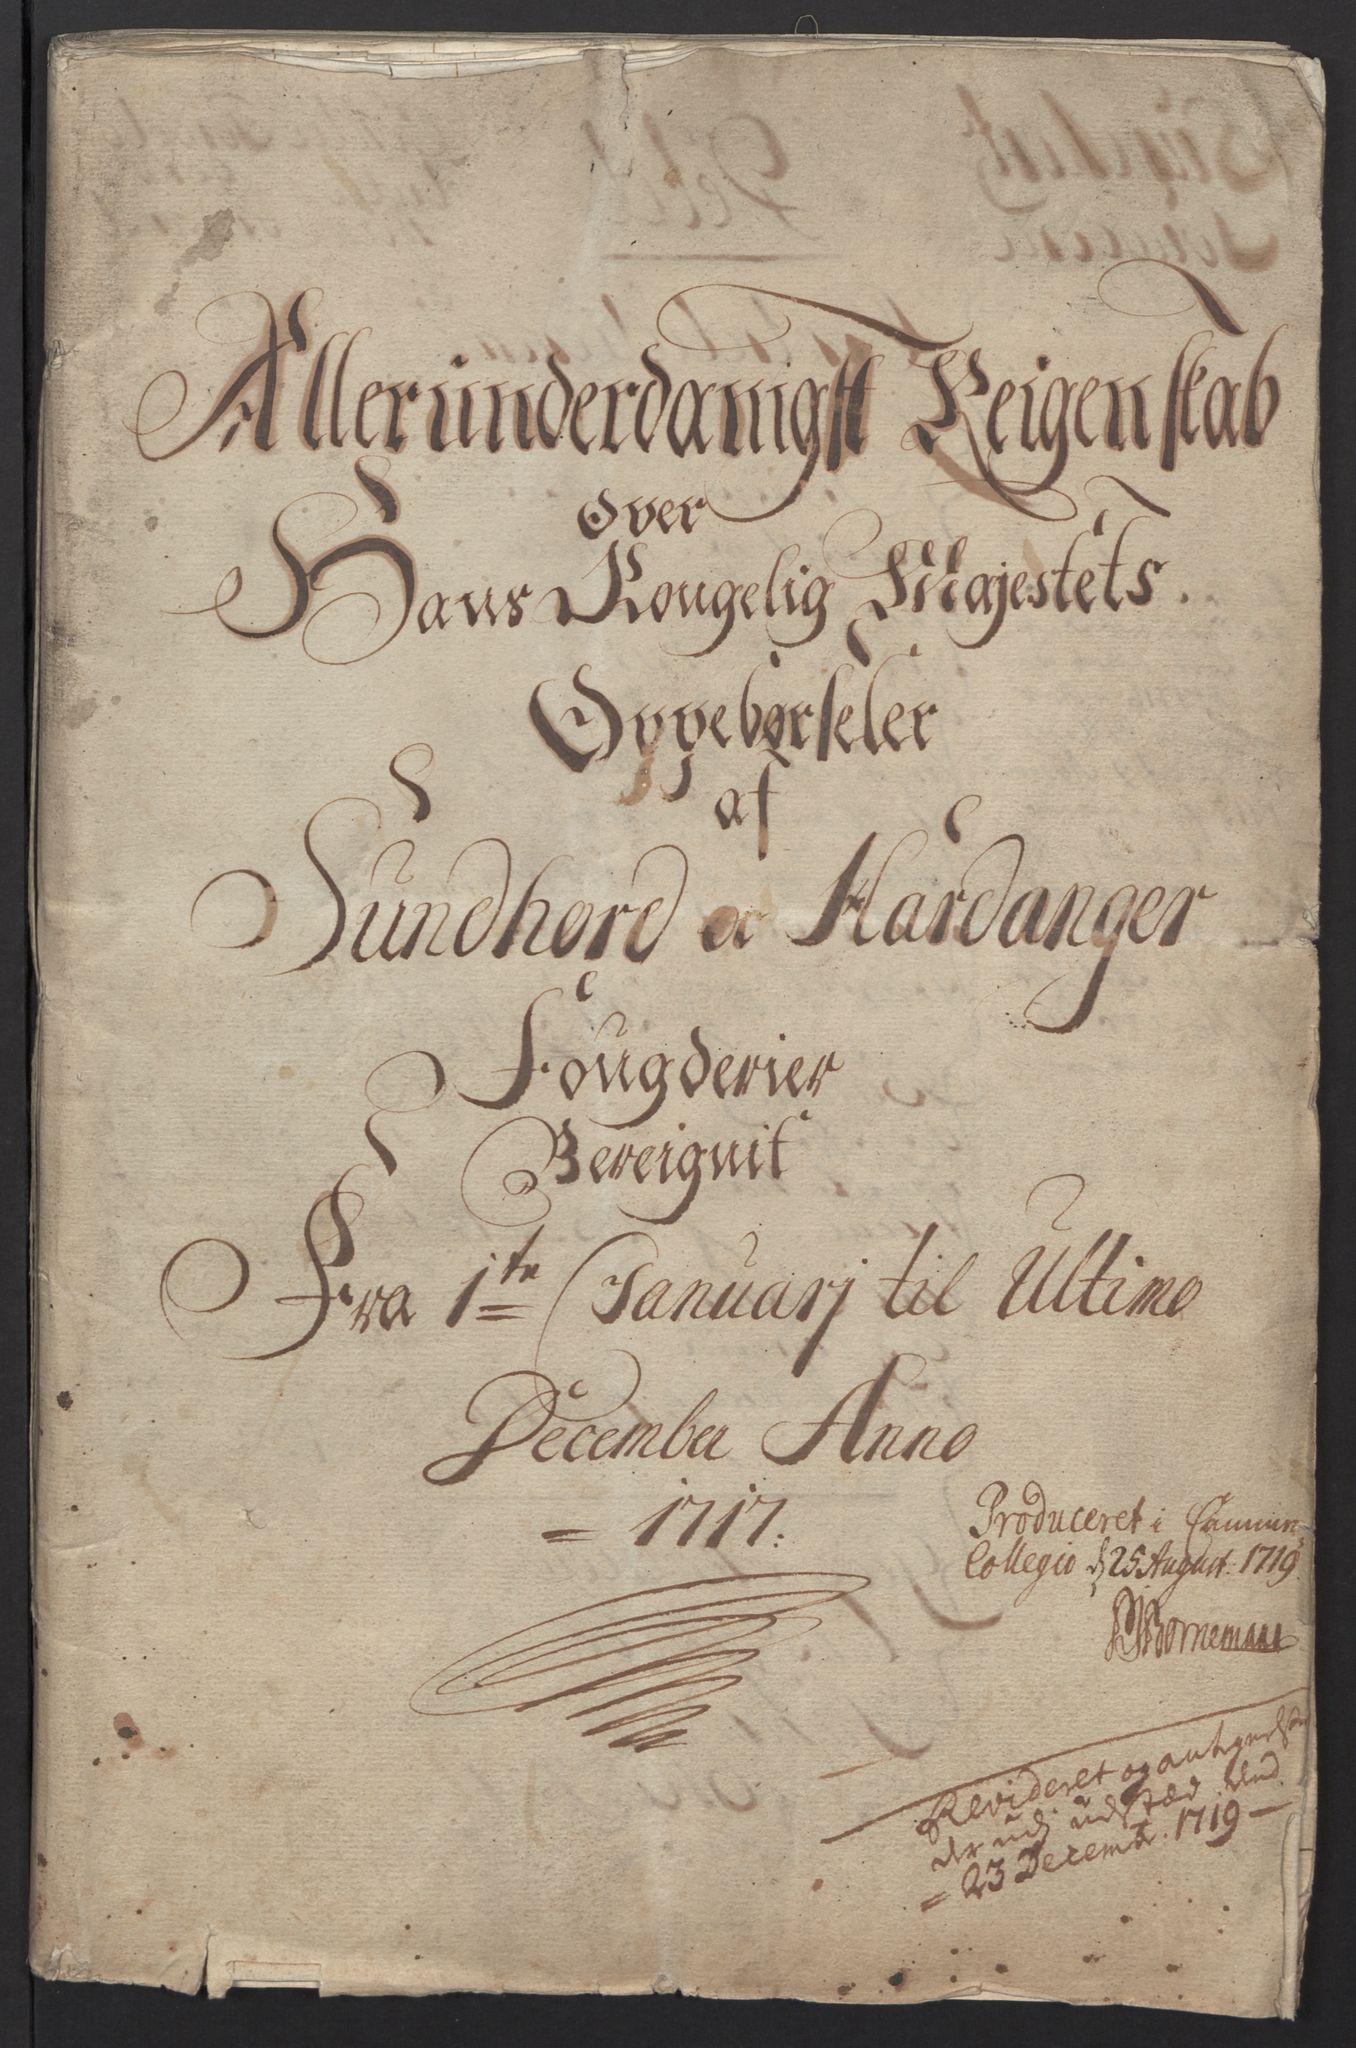 Alleründerdanigst Reigenskab
over
Hans Kongelig Majestets.
Oppebørseler
af
Sündhord oc Hardanger
Fougderier
Bereignit
Fra 1te Januarj til Ultimo
December Anno
= 1717.
Produceret i Cammer
Collegio d 25 August. 1719
Bornemann
Revideret og antegnelser
der udj udstæd
= 23 Decemb. 1719 —